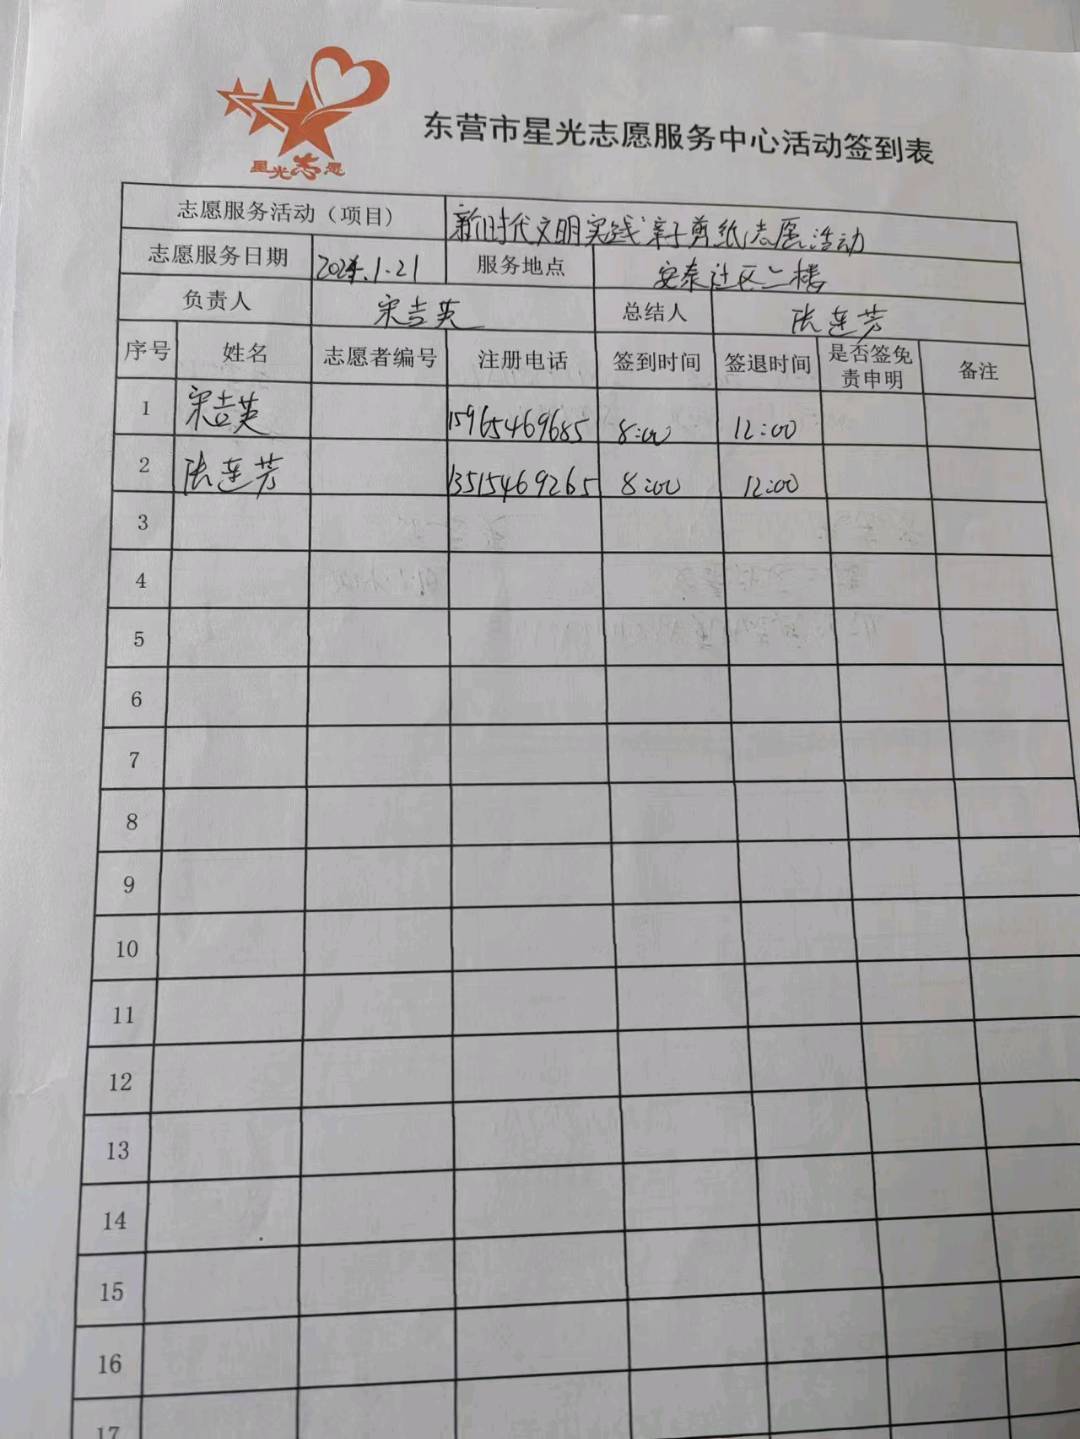 星光志愿
东营市星光志愿服务中心活动签到表
志愿服务活动（项目） 新时代文明实践亲子剪纸志愿活动
志愿服务日期 2024.1.21 服务地点 安泰社区二楼
负责人 宋吉英 总结人 张连芳
序号 姓名 志愿者编号 注册电话 签到时间 签退时间 是否签免责申明 备注
1 宋吉英 15965469685 8:00 12:00
2 张连芳 13515469265 8:00 12:00
3
4
5
6
7
8
9
10
11
12
13
14
15
16
17